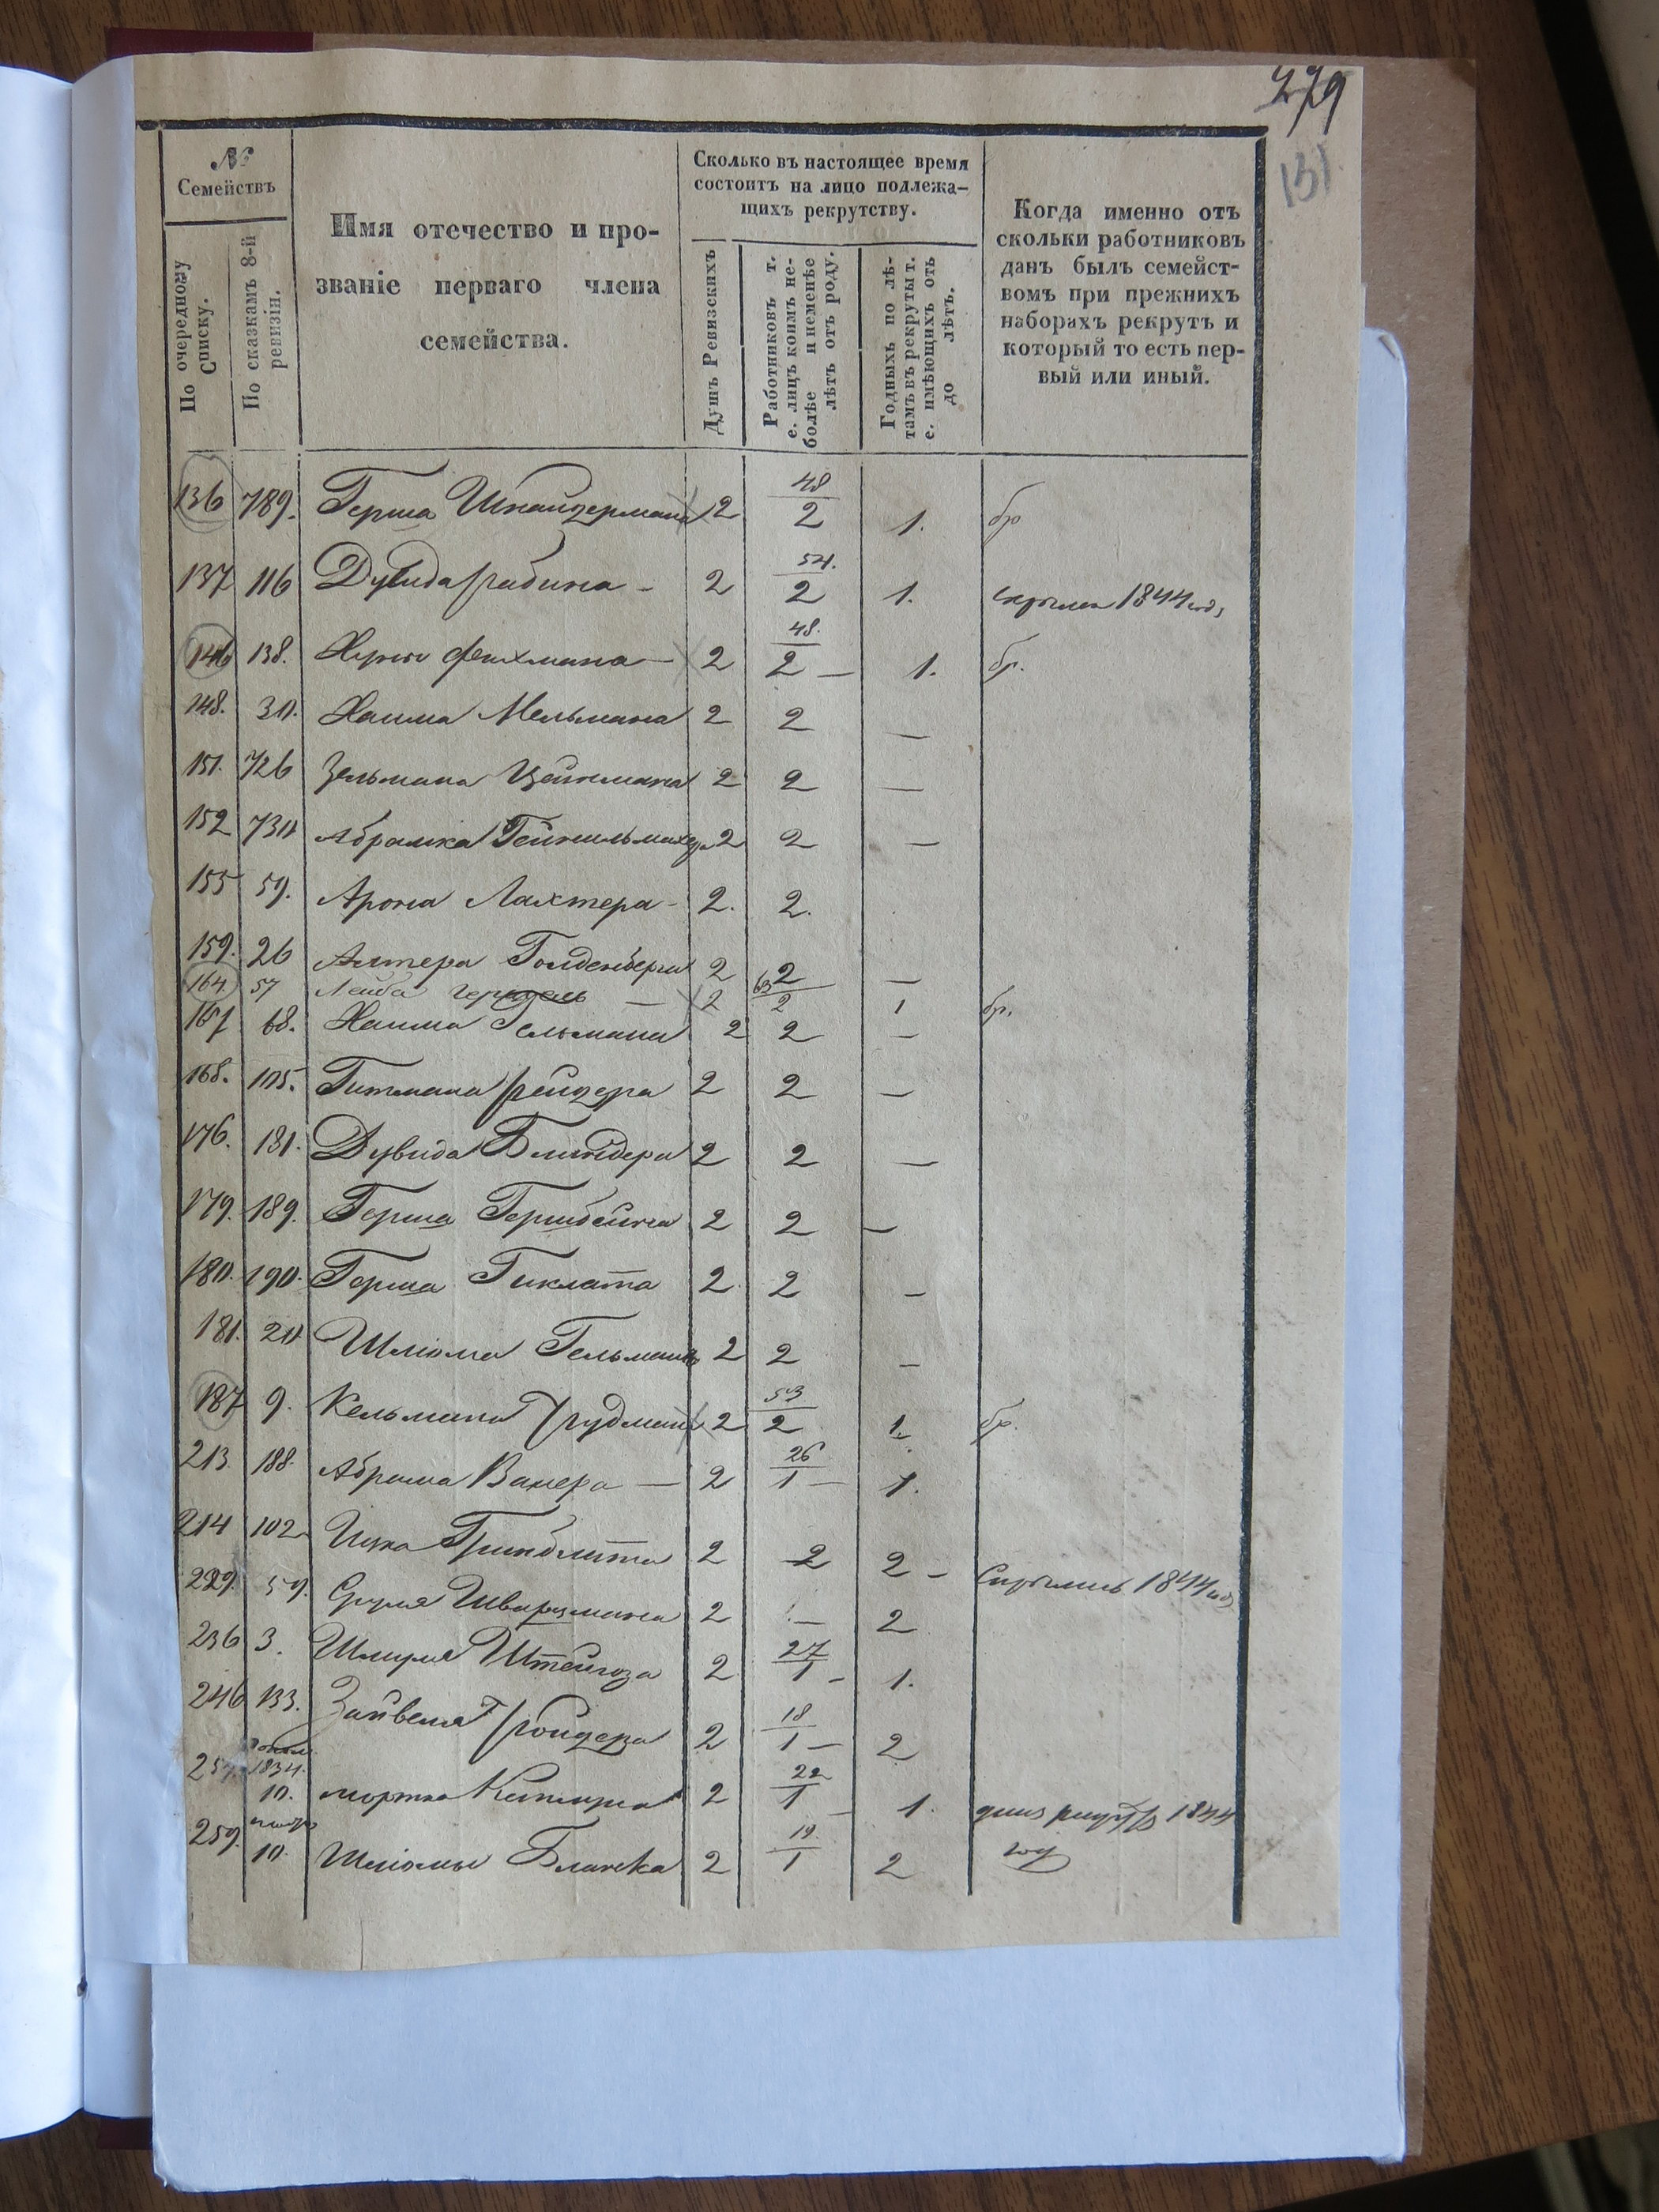 279
131
№
Семействъ
По очередному
Списку.
По сказкамъ 8-й
ревизіи.
Имя отечество и про-
званіе перваго члена
семейства.
Сколько въ настоящее время
состоитъ на лицо подлежа-
щихъ рекрутству.
Душъ Ревизскихъ
Работниковъ т.
е. лицъ коимъ не-
болѣе и неменѣе
лѣтъ отъ роду.
Годныхъ по лѣ-
тамъ въ рекруты т.
е. имѣющихъ отъ
до лѣтъ.
Когда именно отъ
скольки работниковъ
данъ былъ семейст-
вомъ при прежнихъ
наборахъ рекрутъ и
который то есть пер-
вый или иный.
136 789. Герша Шнайдермана 2 48/2 1. бр
137 116 Дувида Грабина - 2 54./2 1. 1844
146 138. Фейхмана - 2 48./2 - 1. бр.
148. 30. Хаима Мельмана 2 2 -
151. 726 Зельмана Цейтмана 2 2 -
152 730 Абрамка 2 2 -
155 59. Арона Лахтера - 2. 2.
159. 26 Алтера Голденберга 2 2 -
164 57 Лейба - 2 63/2 1 бр.
167 68. Хаима Гельмана 2 2 -
168. 105. Гитмана Грейдера 2 2 -
176. 181. Дувида Блиндера 2 2 -
179. 189. Герша Гершбейна 2 2 -
180. 190. Герша Гиклата 2 2 -
181. 20 Шлиома Гельмана 2 2 -
187 9. Кельмана Грудмана 2 53/2 1. бр.
213 188. Абрама Ванера - 2 26/1 - 1.
214 102 Ицка Гринблата 2 2 2 -
229. 59. Сруля Шварцмана 2 - 2 Скрылись 1844
236 3. Шмуля Штейгоза 2 27/1 - 1.
246 133. Зайвеля Гройдера 2 18/1 - 2
257. 1834. 10. Мортка 2 22/1 - 1. 1844
259. 10. Шлиомы Бланка 2 19./1 2 год